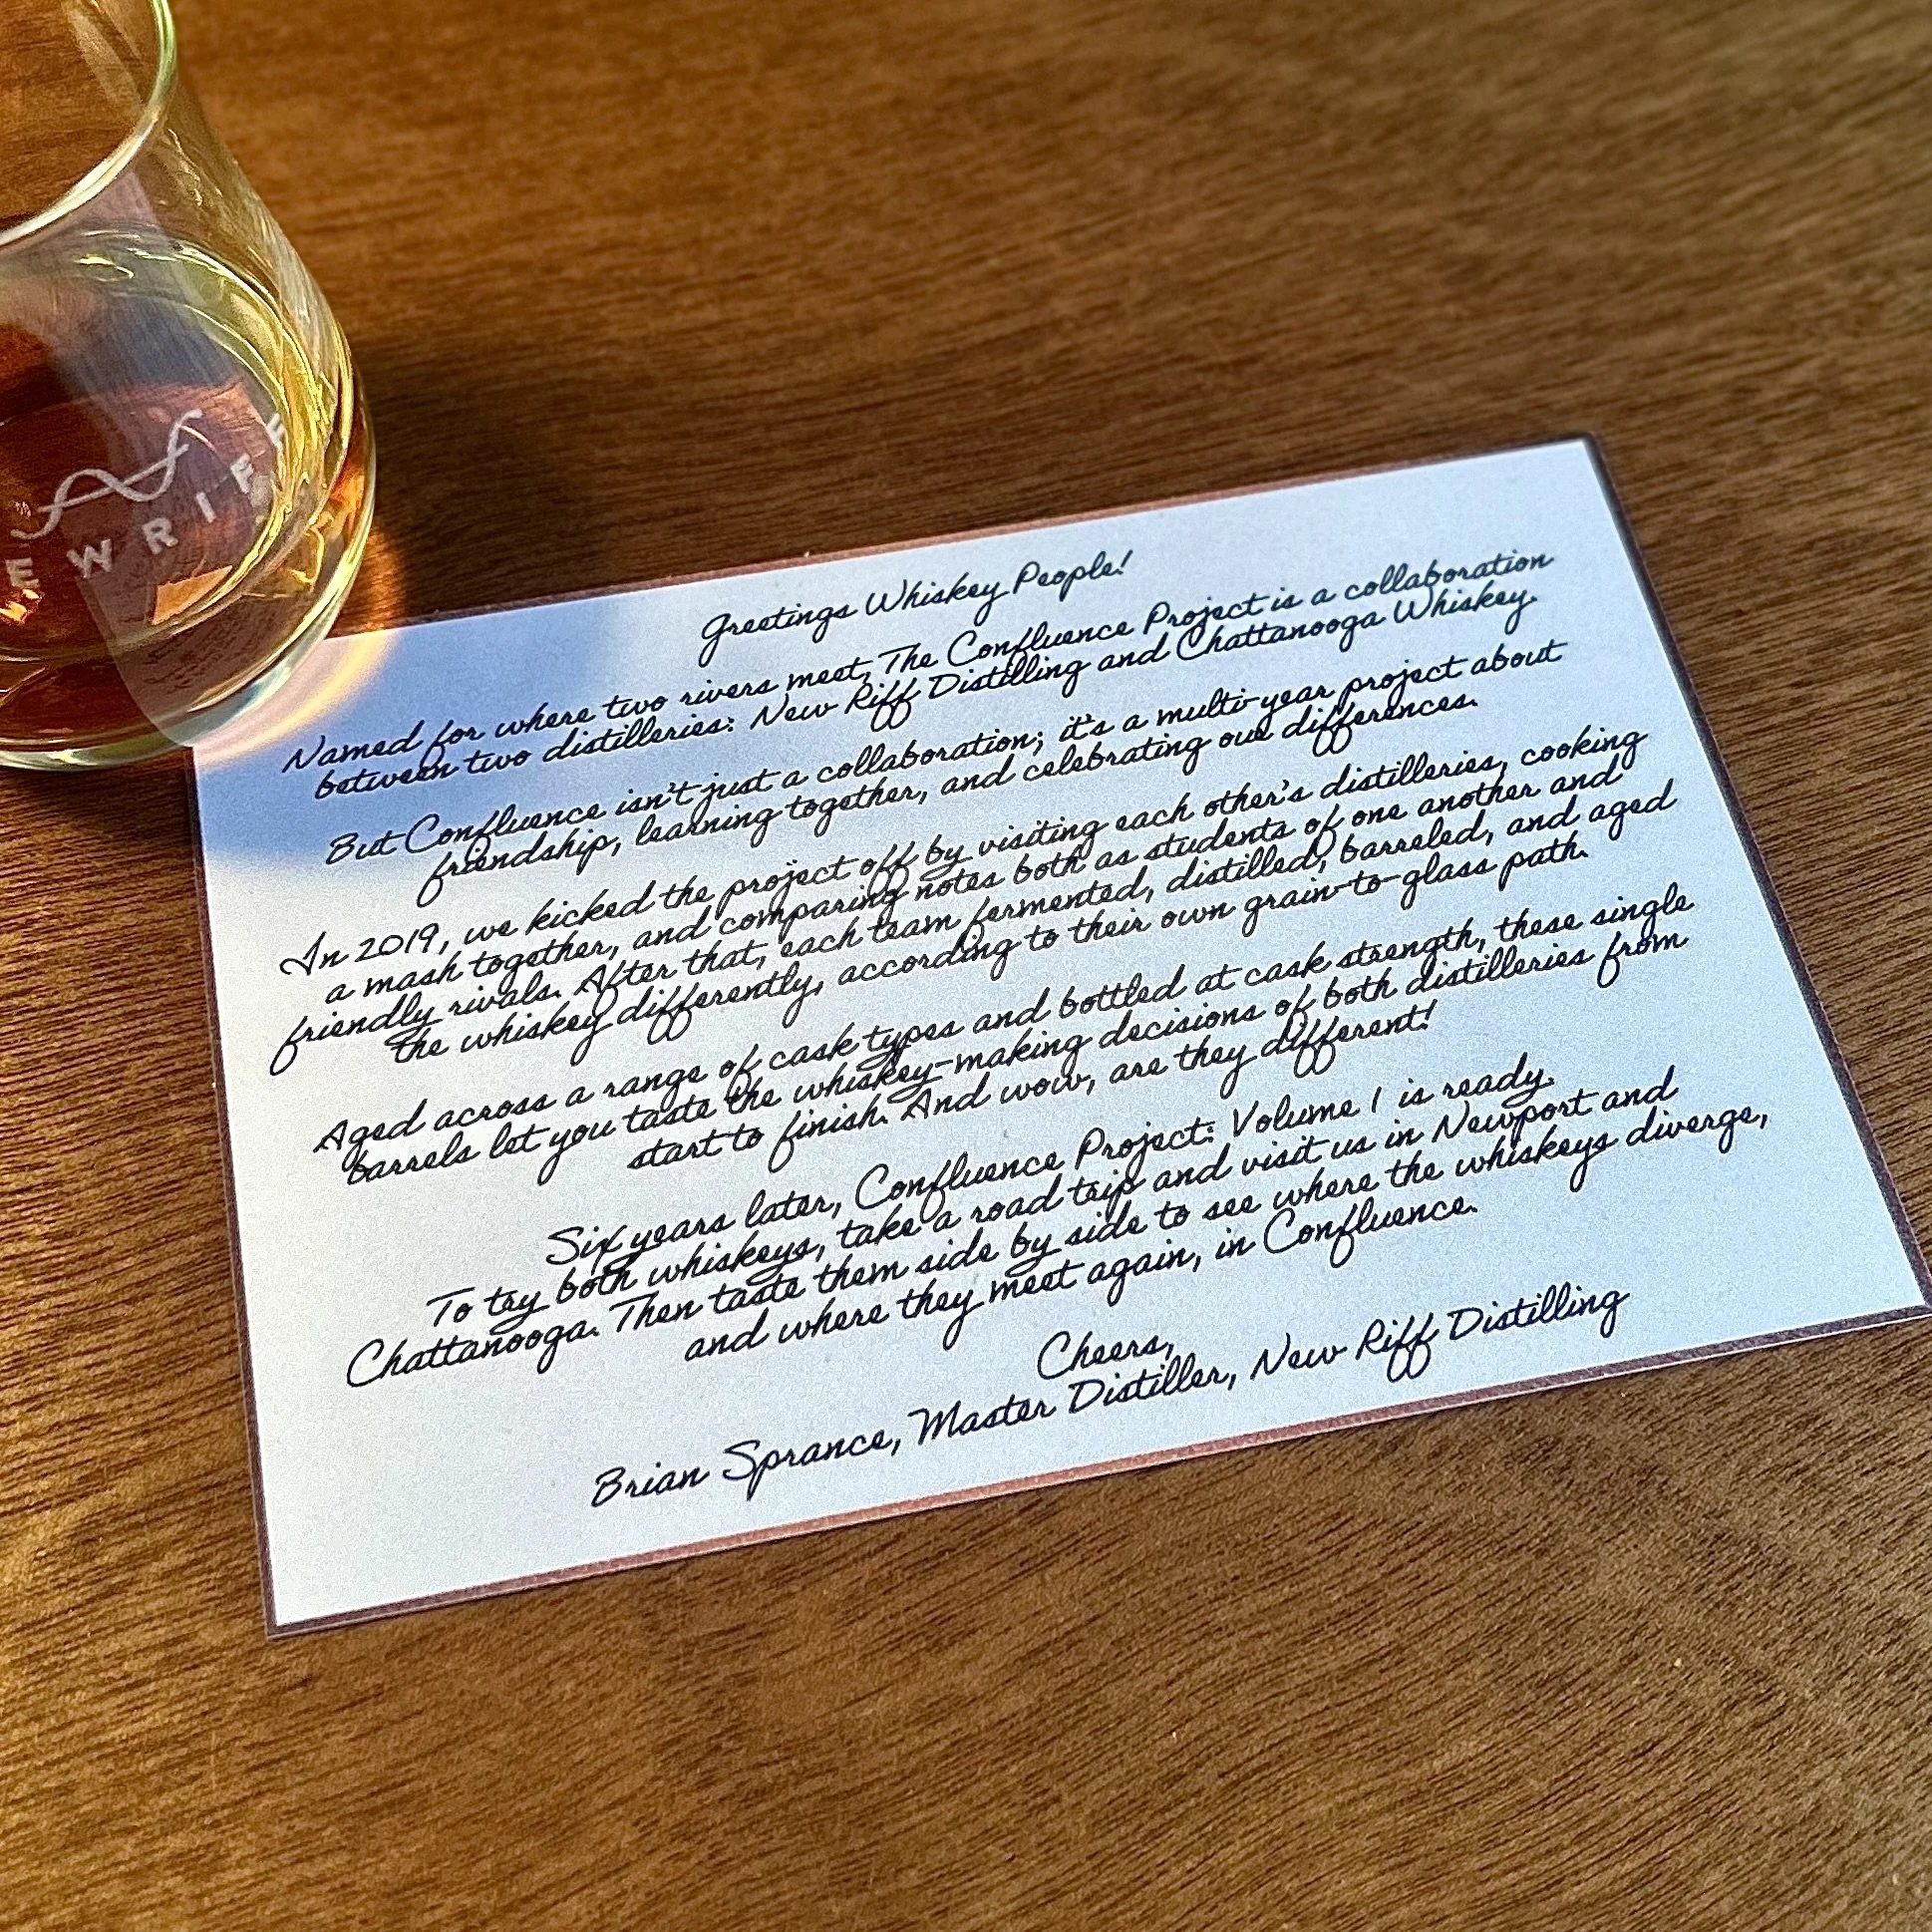 EW RIFF
Greetings Whiskey People!
Named for where two rivers meet, The Confluence Project is a collaboration
between two distilleries: New Riff Distilling and Chattanooga Whiskey.
But Confluence isn't just a collaboration; it's a multi-year project about
friendship, learning together, and celebrating our differences.
In 2019, we kicked the project off by visiting each other's distilleries, cooking
a mash together, and comparing notes both as students of one another and
friendly rivals. After that, each team fermented, distilled, barreled, and aged
the whiskey differently, according to their own grain-to-glass path.
Aged across a range of cask types and bottled at cask strength, these single
barrels let you taste the whiskey-making decisions of both distilleries from
start to finish. And wow, are they different!
Six years later, Confluence Project: Volume 1 is ready.
To try both whiskeys, take a road trip and visit us in Newport and
Chattanooga. Then taste them side by side to see where the whiskeys diverge,
and where they meet again, in Confluence.
Cheers,
Brian Sprance, Master Distiller, New Riff Distilling